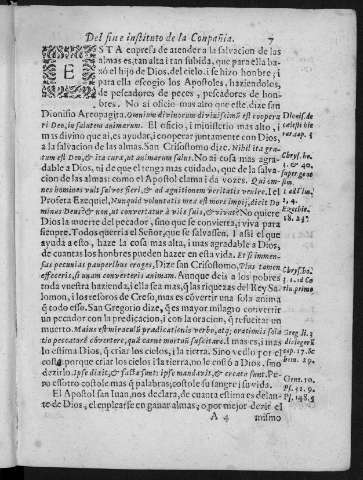 Del fin e instituto de la Conpañia. 7
ESTA enpresa de atender a la salvacion de las
almas es, tan alta i tan subida, que para ella ba-
xó el hijo de Dios, del cielo, i se hizo honbre; i
para ella escogio los Apostoles, haziendolos,
de pescadores de peces, pescadores de hon-
bres. No ai oficio mas alto que este, dize san
Dionisio Areopagita. Omnium divinorum divinissimũ est coopera
ri Deo, in salutem animarum. El oficio, i ministerio mas alto, i
mas divino que ai, es ayudar, i cooperar juntamente con Dios,
a la salvacion de las almas. San Crisostomo dize. Nihil ita gra-
tum est Deo, & ita curæ, ut animarum salus. No ai cosa mas agra-
dable a Dios, ni de que el tenga mas cuidado, que de la salva-
cion de las almas: como el Apostol clama i da vozes. Qui om-
nes homines vult salvos fieri, & ad agnitionem veritatis venire. I el
Profeta Ezequiel, Nunquid voluntatis meæ est mors impij, dicit Do
minus Deus? & non, ut convertatur à viis suis, & vivat? No quiere
Dios la muerte del pecador, sino que se convierta, i viva para
siempre. Todos querria el Señor, que se salvassen. I assi el que
ayuda a esto, haze la cosa mas alta, i mas agradable a Dios,
de cuantas los honbres pueden hazer en esta vida. Et si immen-
sas pecunias pauperibus eroges, Dize san Crisostomo. Plus tamen
effeceris, si unam converteris animam. Aunque deis a los pobres
toda vuestra hazienda, i ella sea mas, q̃ las riquezas del Rey Sa
lomon, i los tesoros de Creso, mas es cõvertir una sola anima
q̃ todo esso. San Gregorio dize, q̃ es mayor milagro convertir
un pecador con la predicacion, i con la oracion, q̃ resucitar un
muerto. Maius est miraculũ prædicationis verbo, atq; orationis sola
tio peccatorẽ cõvertere, quã carne mortuũ suscitare. I mas es, i mas
lo estima Dios, q̃ criar los cielos, i la tierra. Sino vedlo por el
costa. porque criar los cielos i la tierra, no le costó a Dios, sino
dezirlo. Ipse dixit, & facta sunt: ipse mandavit, & creata sunt. Pe-
ro essotro costole mas q̃ palabras, costole su sangre i su vida.
El Apostol san Iuan, nos declara, de cuanta estima es delan-
te de Dios, el enplearse en ganar almas; o por mejor dezir el
A 4 mismo
Dionis. de
Chrys. ho.
3. & 40.
super gene
1. ad Tim.
2, 4.
Ezechie.
18. 23.
Chrys. ho.
Greg. li. 3
Gen. 10.
Ps. 32. 9.
Ps. 148. 5